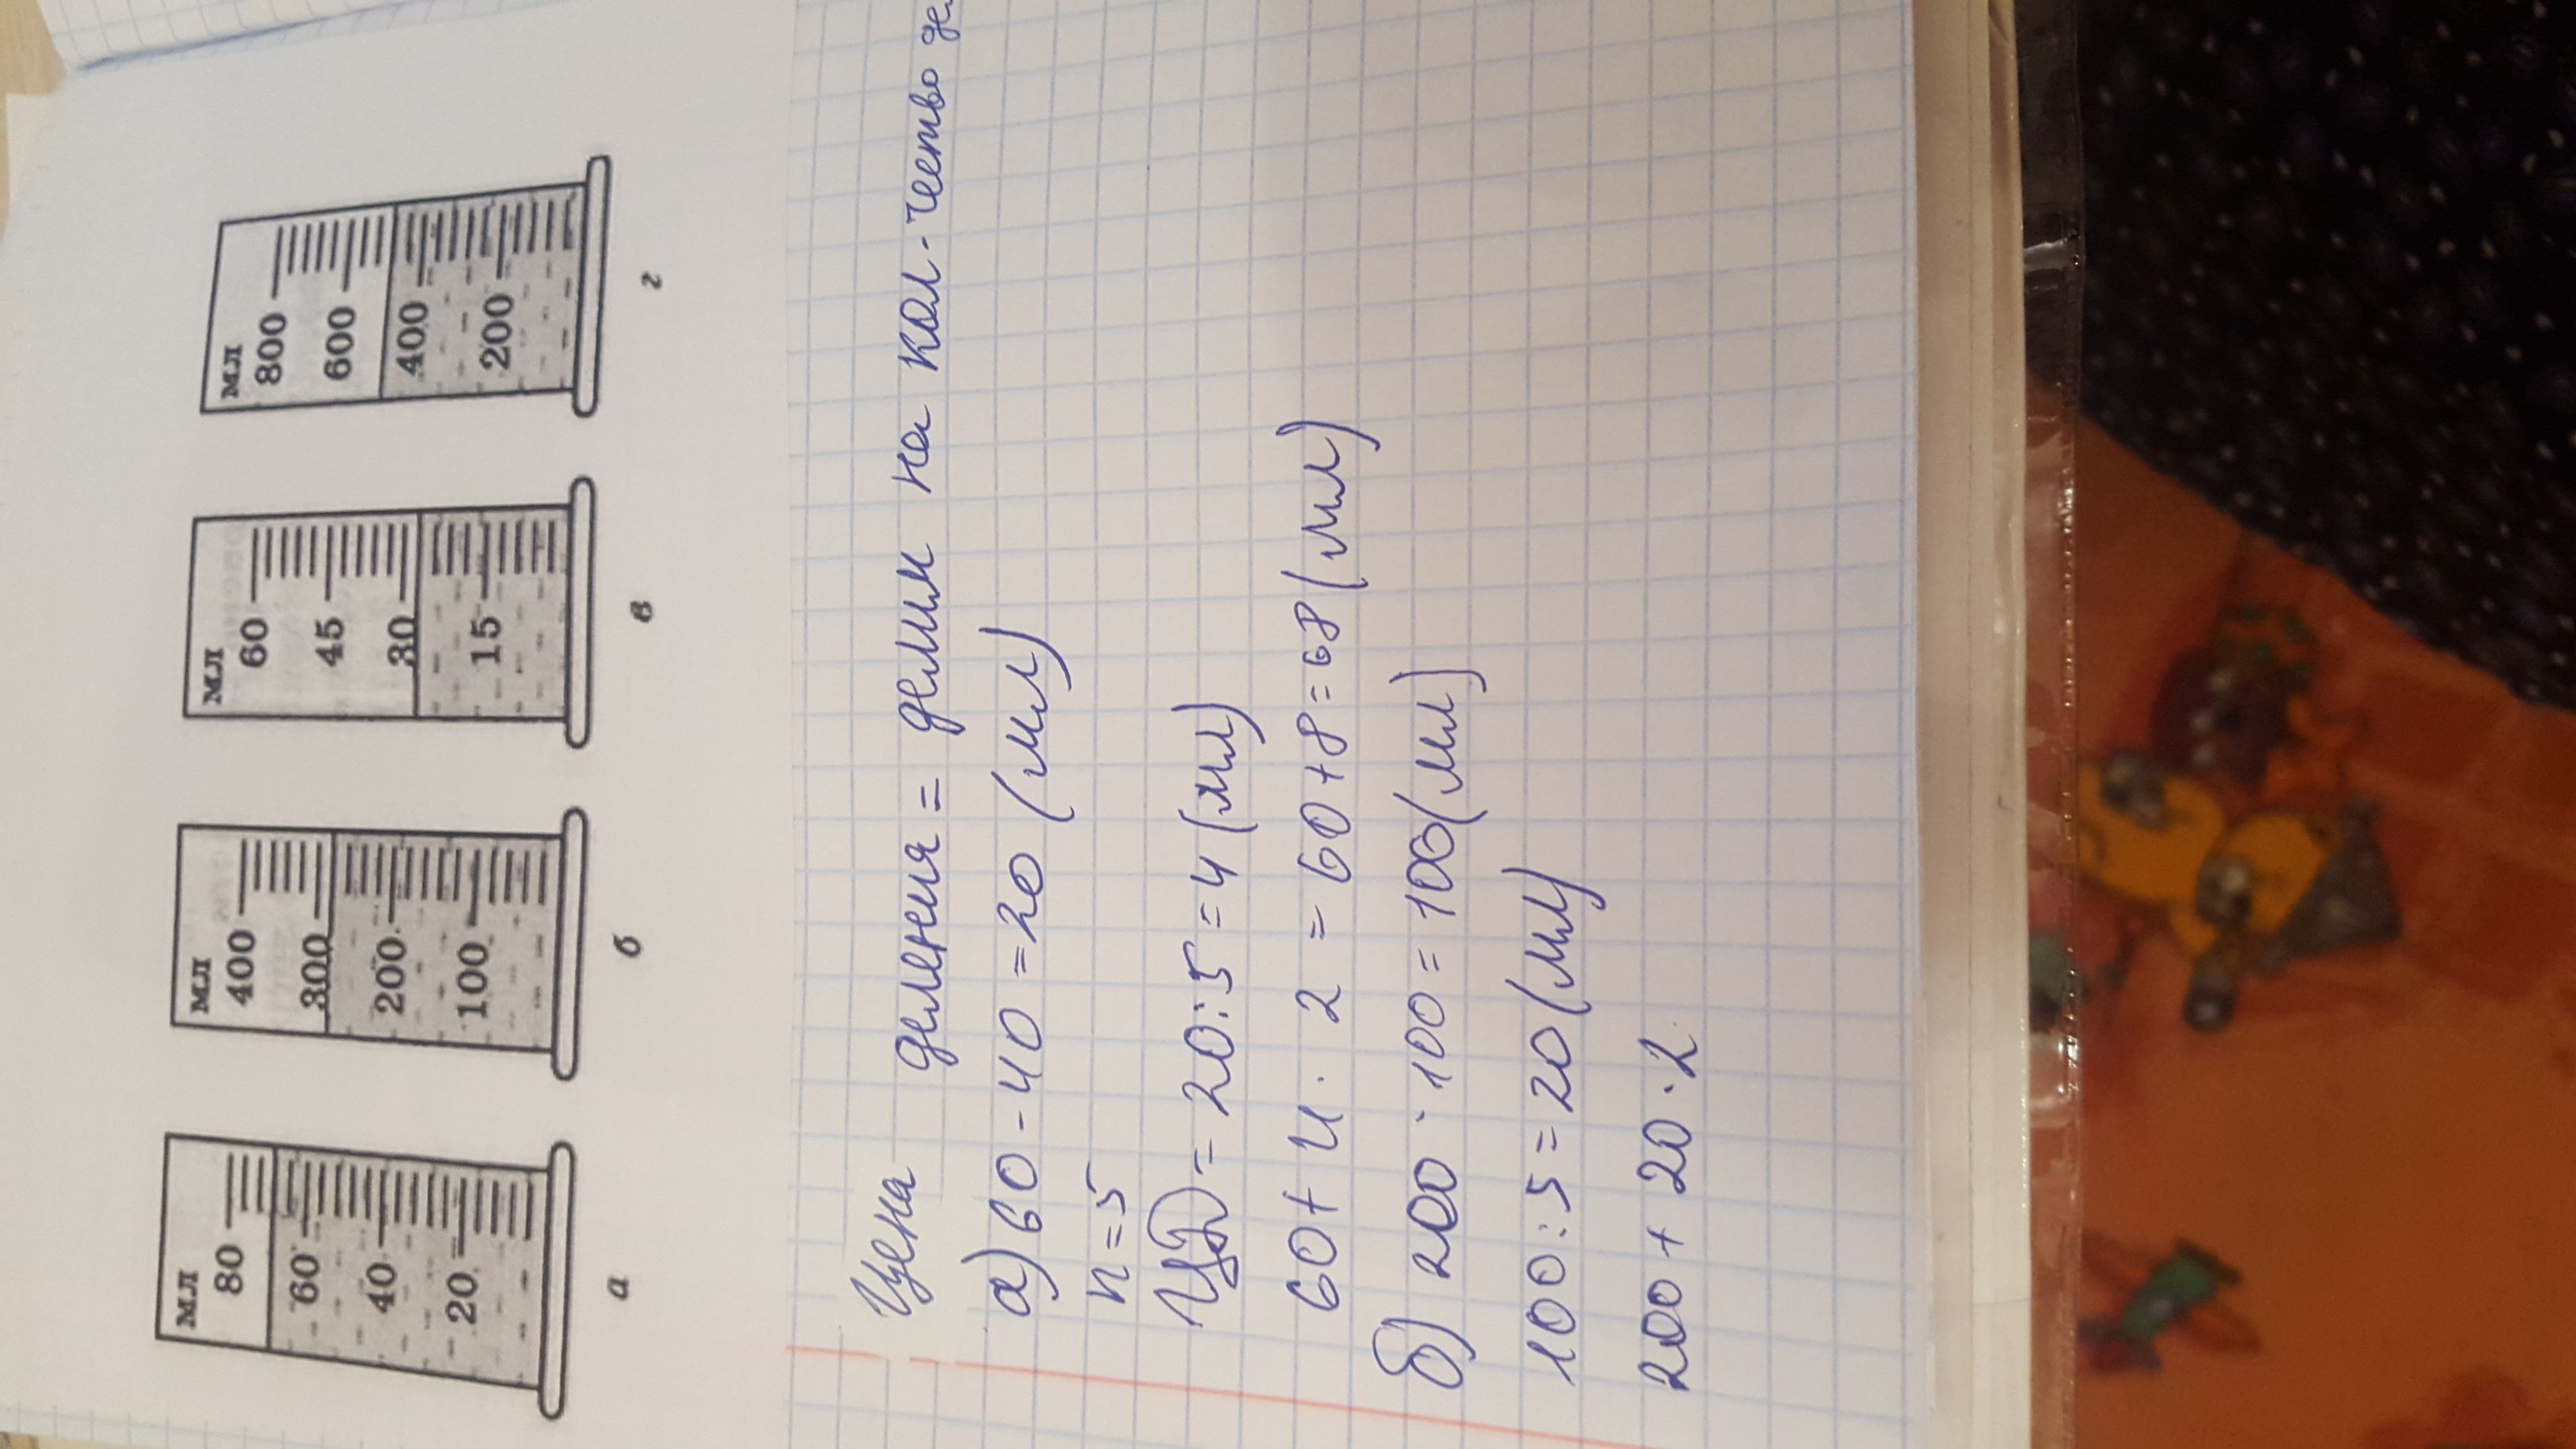 мл
80
60
40
20
а
мл
400
300
200
100
б
мл
60
45
30
15
в
мл
800
600
400
200
г
Цена деления = делим на кол-чество де
а) 60 - 40 = 20 (мл)
n = 5
ЦД = 20 : 5 = 4 (мл)
60 + 4 · 2 = 60 + 8 = 68 (мл)
б) 200 - 100 = 100 (мл)
100 : 5 = 20 (мл)
200 + 20 · 2